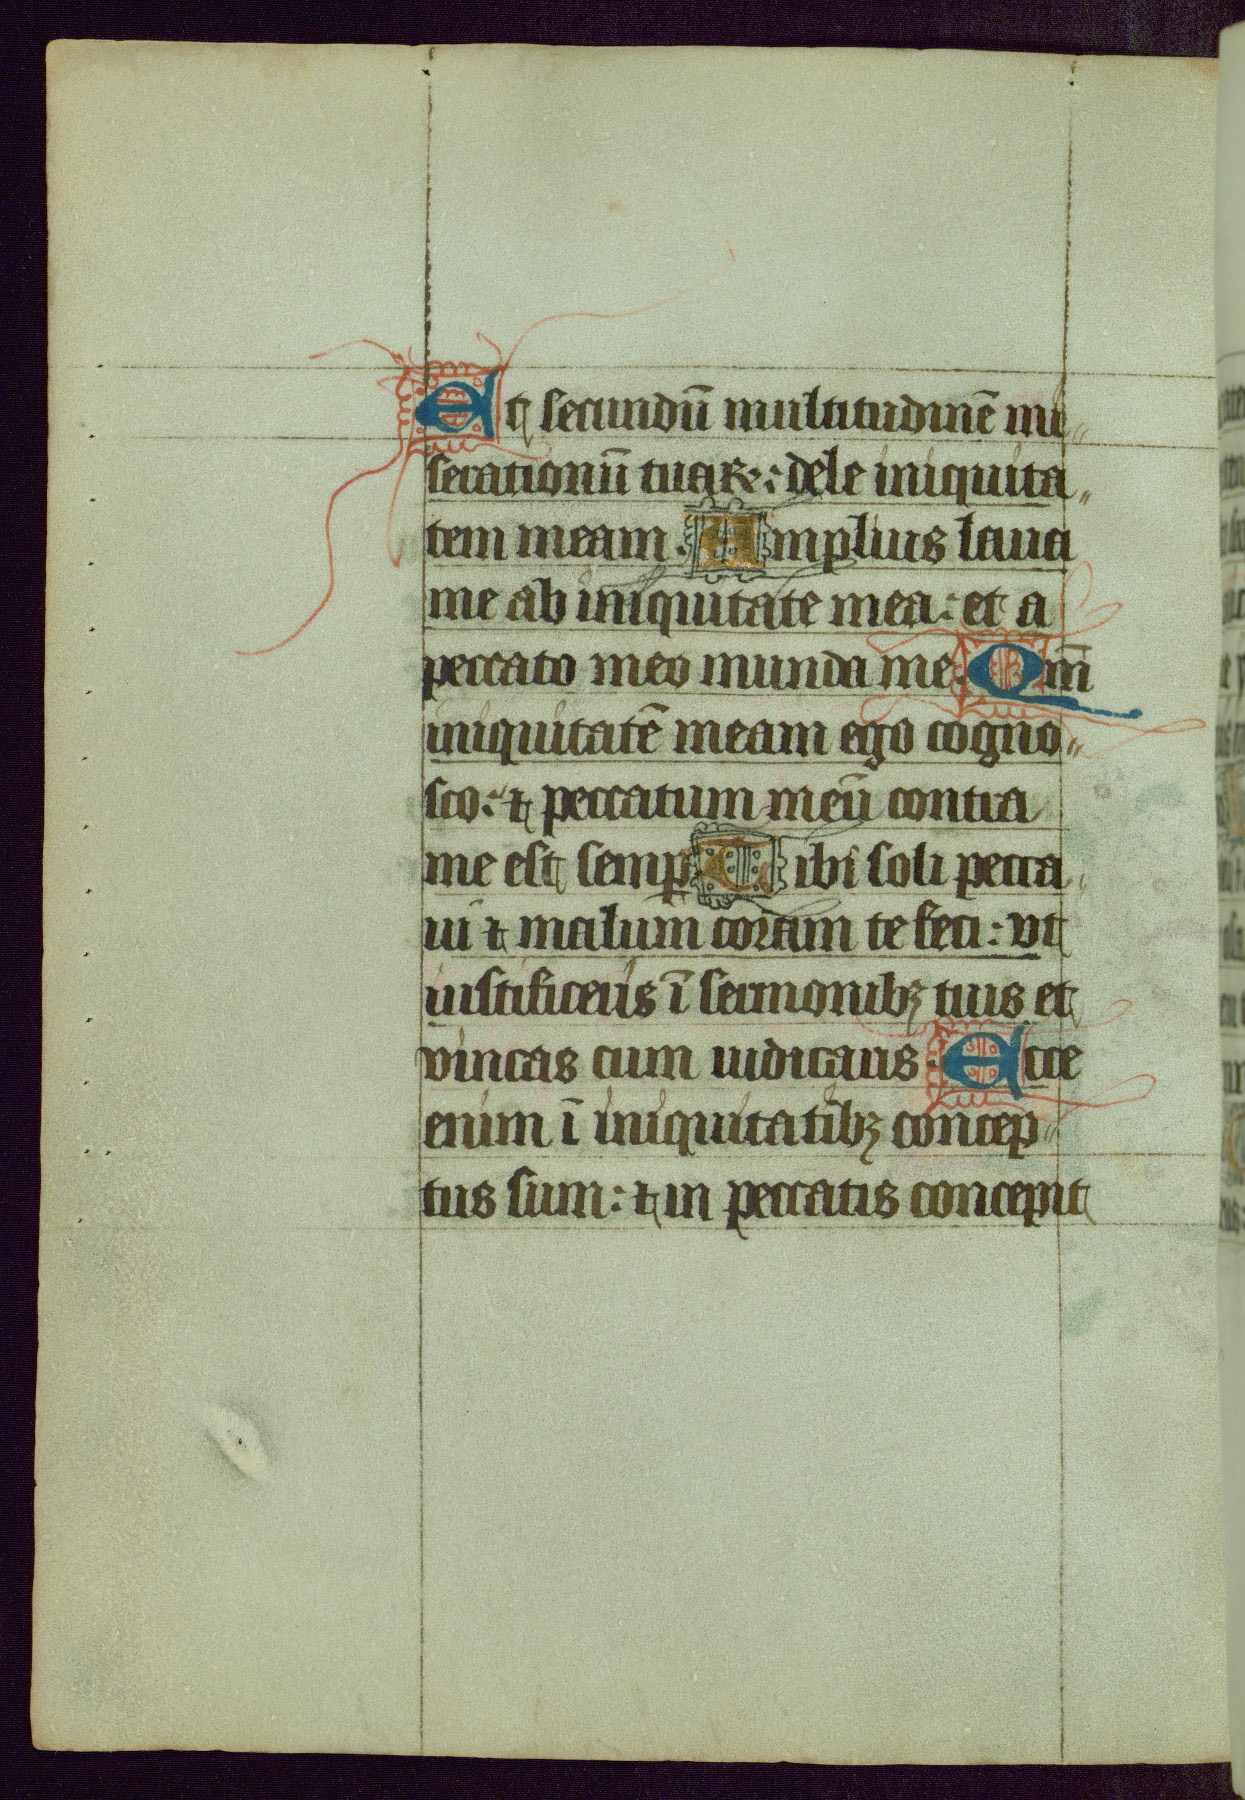 Et secundū multitudinē mi„
serationū tuaꝝ: dele iniquita„
tem meam. Amplius laua
me ab iniquitate mea: et a
peccato meo munda me. Qm̄
iniquitatē meam ego cogno„
sco: ⁊ peccatum meū contra
me est semꝑ Tibi soli pecca„
ui ⁊ malum coram te feci: vt
iustificeris ī sermonibꝫ tuis et
vincas cum iudicaris. Ecce
enim ī iniquitatibꝫ concep„
tus sum: ⁊ in peccatis concepit